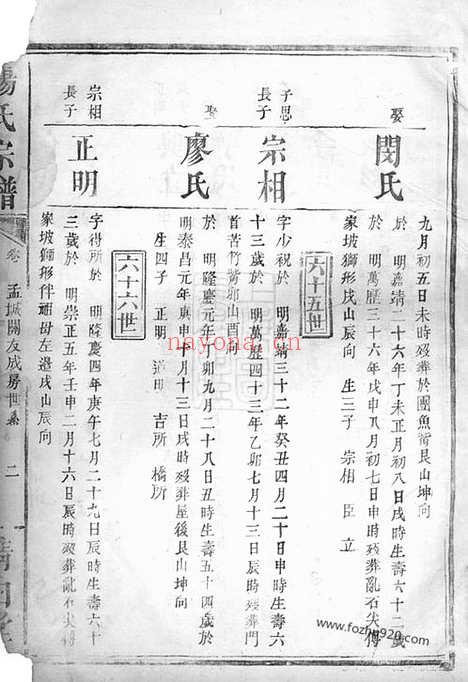 九月初五日未時歿葬於團魚嘴艮山坤向
娶
閔氏
於 明嘉靖二十六年丁未正月初八日戌時生壽六十二歲
於 明萬歷三十六年戊申八月初七日申時歿葬亂石尖傅
家坡獅形戌山辰向 生三子 宗相 臣 立
六十五世
子思
長子
宗相
字少祝於 明嘉靖三十二年癸丑四月二十日申時生壽六
十三歲於 明萬歷四十三年乙卯七月十三日辰時歿葬門
首苦竹嘴卯山酉向
娶
廖氏
於 明隆慶元年 卯九月二十八日丑時生壽五十四歲於
明泰昌元年庚申 月十三日戌時歿葬屋後艮山坤向
生四子 正明 道明 吉所 橋所
六十六世
宗相
長子
正明
字得所於 明隆慶四年庚午七月二十九日辰時生壽六十
三歲於 明崇正五年壬申二月十六日辰時歿葬亂石尖傅
家坡獅形伴禰母左邊戌山辰向
楊氏宗譜
卷
孟城關友成房世系
二
nayona.cn
www.fozhu920.com